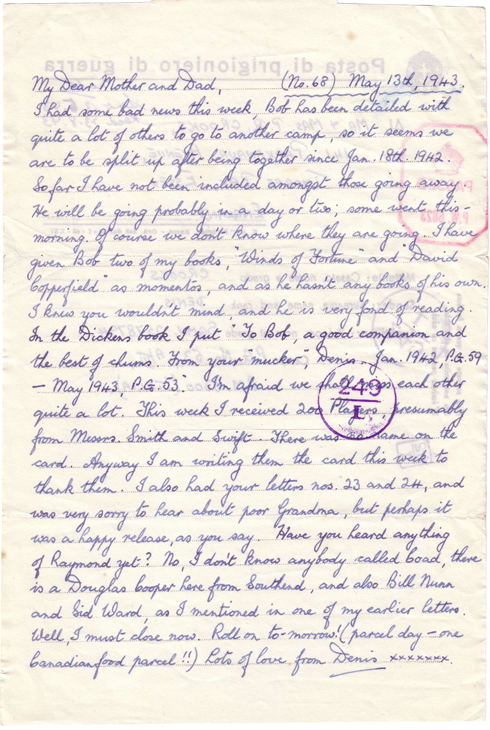 My Dear Mother and Dad, (No. 68) May 13th, 1943.
I had some bad news this week, Bob has been detailed with
quite a lot of others to go to another camp so it seems we
are to be split up after being together since Jan. 18th. 1942.
So far I have not been included amongst those going away.
He will be going probably in a day or two, some went this-
morning. Of course we don't know where they are going. I have
given Bob two of my books, "Winds of Fortune" and "David
Copperfield" as momentos, and as he hasn't any books of his own.
I knew you wouldn't mind, and he is very fond of reading.
In the Dickens book I put "To Bob, a good companion and
the best of chums. From your "mucker", Denis. Jan. 1942, P.G. 59
- May 1943, P.G. 53. I'm afraid we shall miss each other
quite a lot. This week I received 200 Players, presumably
from Messrs. Smith and Swift. There was no name on the
card. Anyway I am writing them the card this week to
thank them. I also had your letters nos. 23 and 24, and
was very sorry to hear about poor Grandma, but perhaps it
was a happy release, as you say. Have you heard anything
of Raymond yet? No, I don't know anybody called Coad, there
is a Douglas Cooper here from Southend, and also Bill Nunn
and Sid Ward, as I mentioned in one of my earlier letters.
Well, I must close now. Roll on to-morrow! (parcel day - one
Canadian food parcel!!) Lots of love from Denis xxxxxxx.
249
1.
Posta di prigioniero di guerra